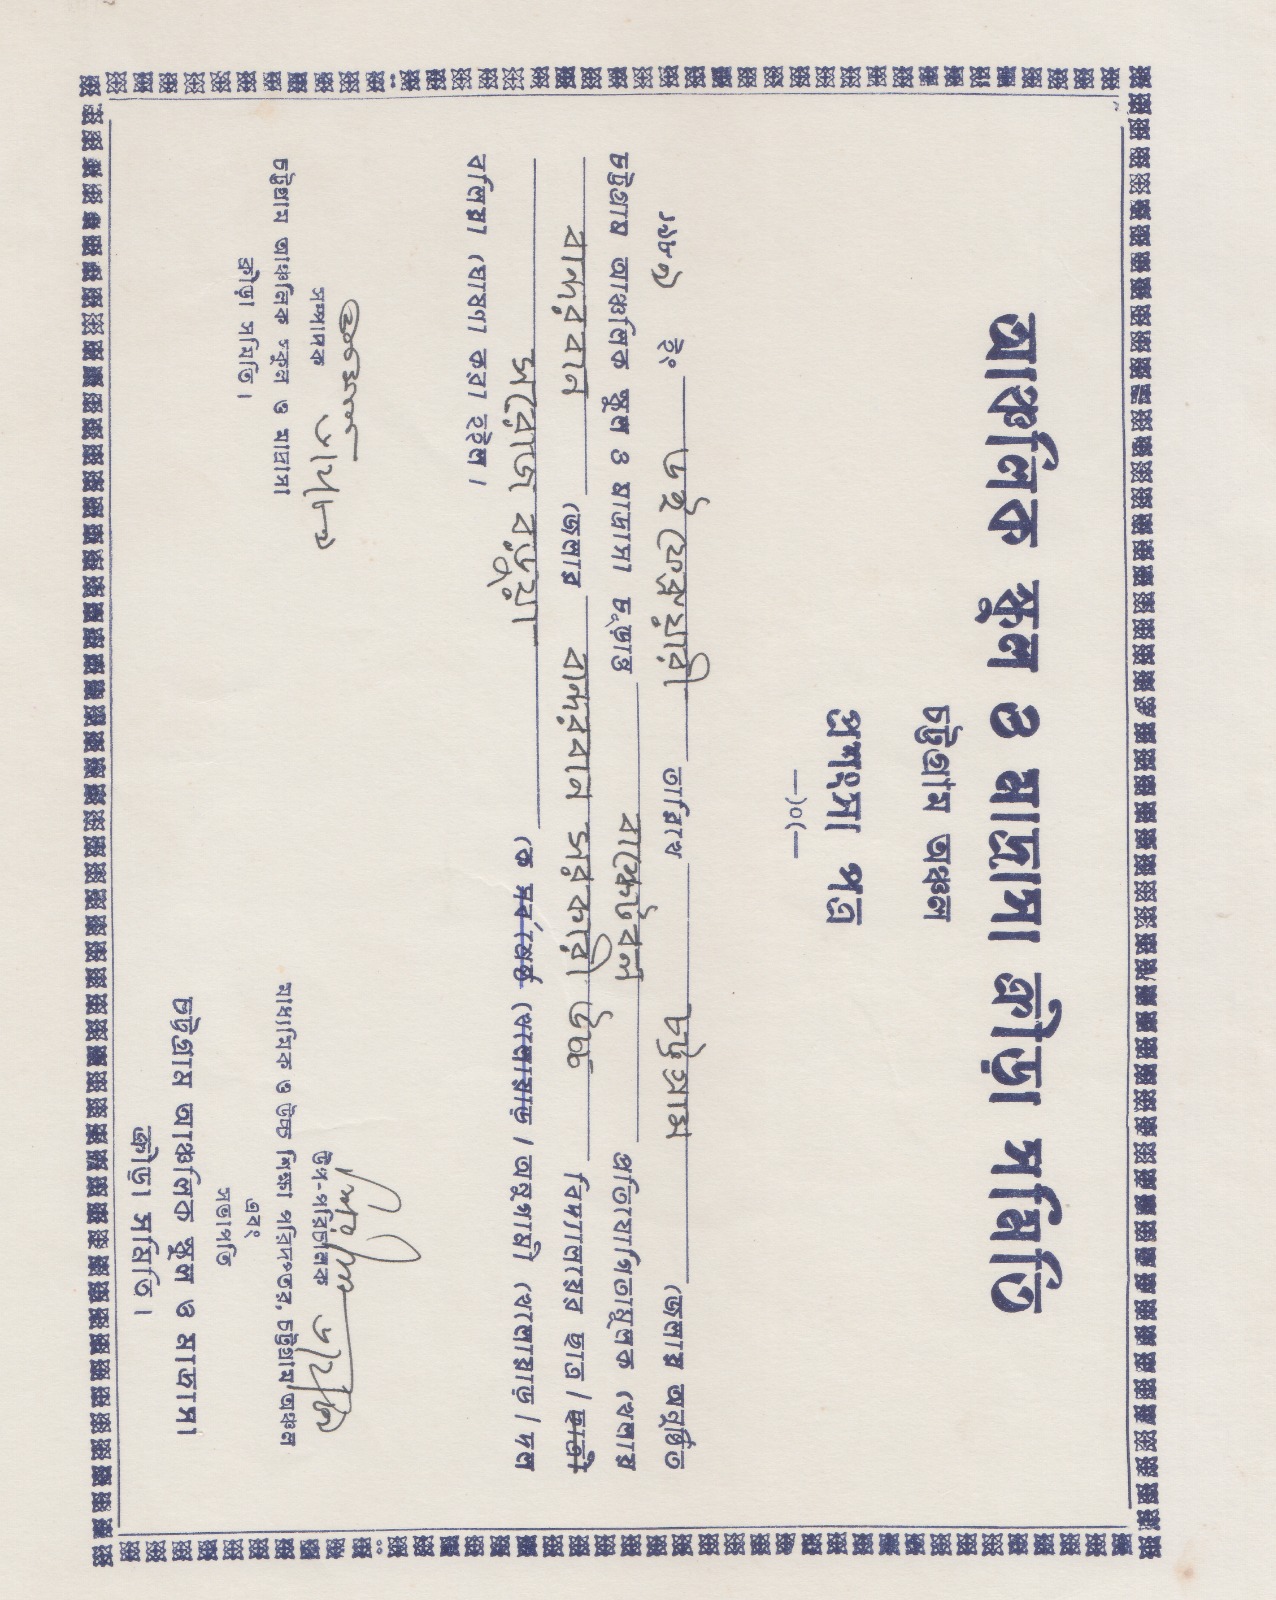 আঞ্চলিক স্কুল ও মাদ্রাসা ক্রীড়া সমিতি
চট্টগ্রাম অঞ্চল
প্রশংসা পত্র
—)০(—
১৯৮৯ ইং ৬ই ফেব্রুয়ারী তারিখে চট্টগ্রাম জেলায় অনুষ্ঠিত
চট্টগ্রাম আঞ্চলিক স্কুল ও মাদ্রাসা চূড়ান্ত বাস্কেটবল প্রতিযোগিতামূলক খেলায়
বান্দরবান জেলার বান্দরবান সরকারী উচ্চ বিদ্যালয়ের ছাত্র / ছাত্রী
সরোজ বড়ুয়া কে সর্বশ্রেষ্ঠ খেলোয়াড় / অনুগামী খেলোয়াড় / দল
বলিয়া ঘোষণা করা হইল।
সম্পাদক ৬/২/৮৯
চট্টগ্রাম আঞ্চলিক স্কুল ও মাদ্রাসা
ক্রীড়া সমিতি।
উপ-পরিচালক ৬/২/৮৯
মাধ্যমিক ও উচ্চ শিক্ষা পরিদপ্তর, চট্টগ্রাম অঞ্চল
এবং
সভাপতি
চট্টগ্রাম আঞ্চলিক স্কুল ও মাদ্রাসা
ক্রীড়া সমিতি।